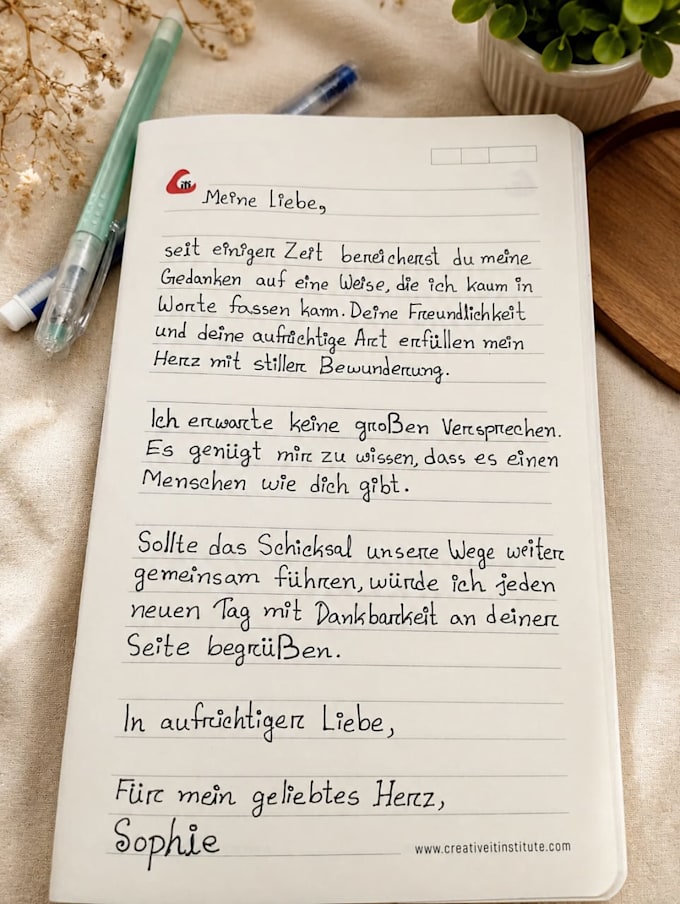 Citi
Meine Liebe,
seit einiger Zeit bereicherst du meine
Gedanken auf eine Weise, die ich kaum in
Worte fassen kann. Deine Freundlichkeit
und deine aufrichtige Art erfüllen mein
Herz mit stiller Bewunderung.
Ich erwarte keine großen Versprechen.
Es genügt mir zu wissen, dass es einen
Menschen wie dich gibt.
Sollte das Schicksal unsere Wege weiter
gemeinsam führen, würde ich jeden
neuen Tag mit Dankbarkeit an deiner
Seite begrüßen.
In aufrichtiger Liebe,
Für mein geliebtes Herz,
Sophie
www.creativeitinstitute.com